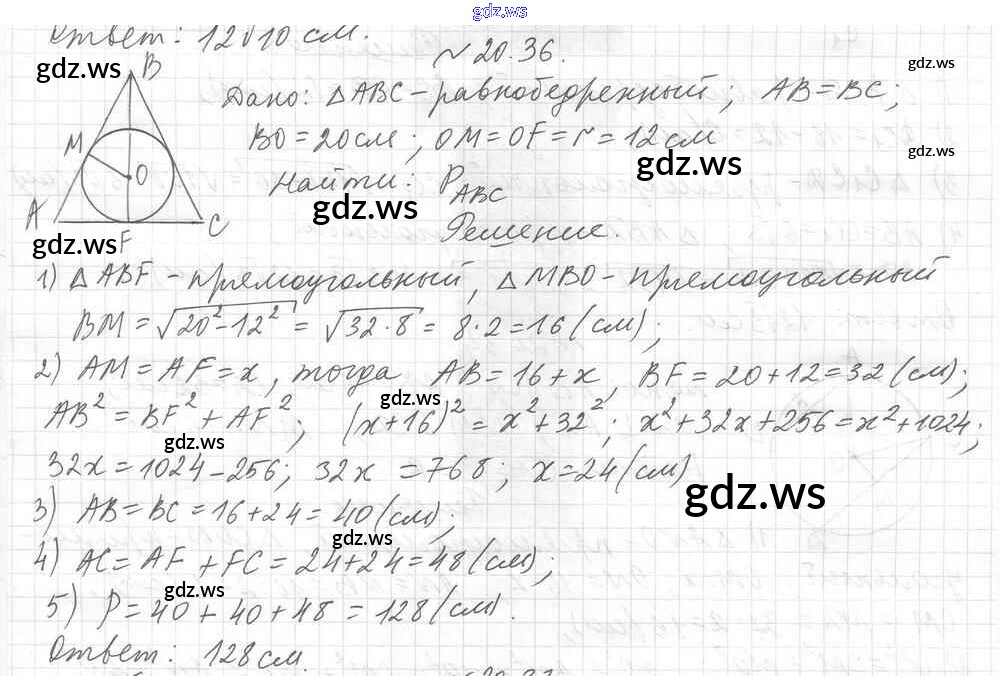 gdz.ws
Ответ: 12 и 10 см.
№ 20.36.
gdz.ws
gdz.ws
B
Дано: △ABC - равнобедренный; AB = BC;
M
BO = 20 см; OM = OF = r = 12 см
gdz.ws
gdz.ws
O
Найти: P_ABC
gdz.ws
A
C
F
gdz.ws
Решение.
1) △ABF - прямоугольный, △MBO - прямоугольный
BM = √(20² - 12²) = √(32 · 8) = 8 · 2 = 16 (см);
2) AM = AF = x, тогда AB = 16 + x, BF = 20 + 12 = 32 (см);
gdz.ws
AB² = BF² + AF²; (x + 16)² = x² + 32²; x² + 32x + 256 = x² + 1024;
gdz.ws
32x = 1024 - 256; 32x = 768; x = 24 (см)
gdz.ws
3) AB = BC = 16 + 24 = 40 (см);
gdz.ws
4) AC = AF + FC = 24 + 24 = 48 (см);
gdz.ws
5) P = 40 + 40 + 48 = 128 (см).
Ответ: 128 см.